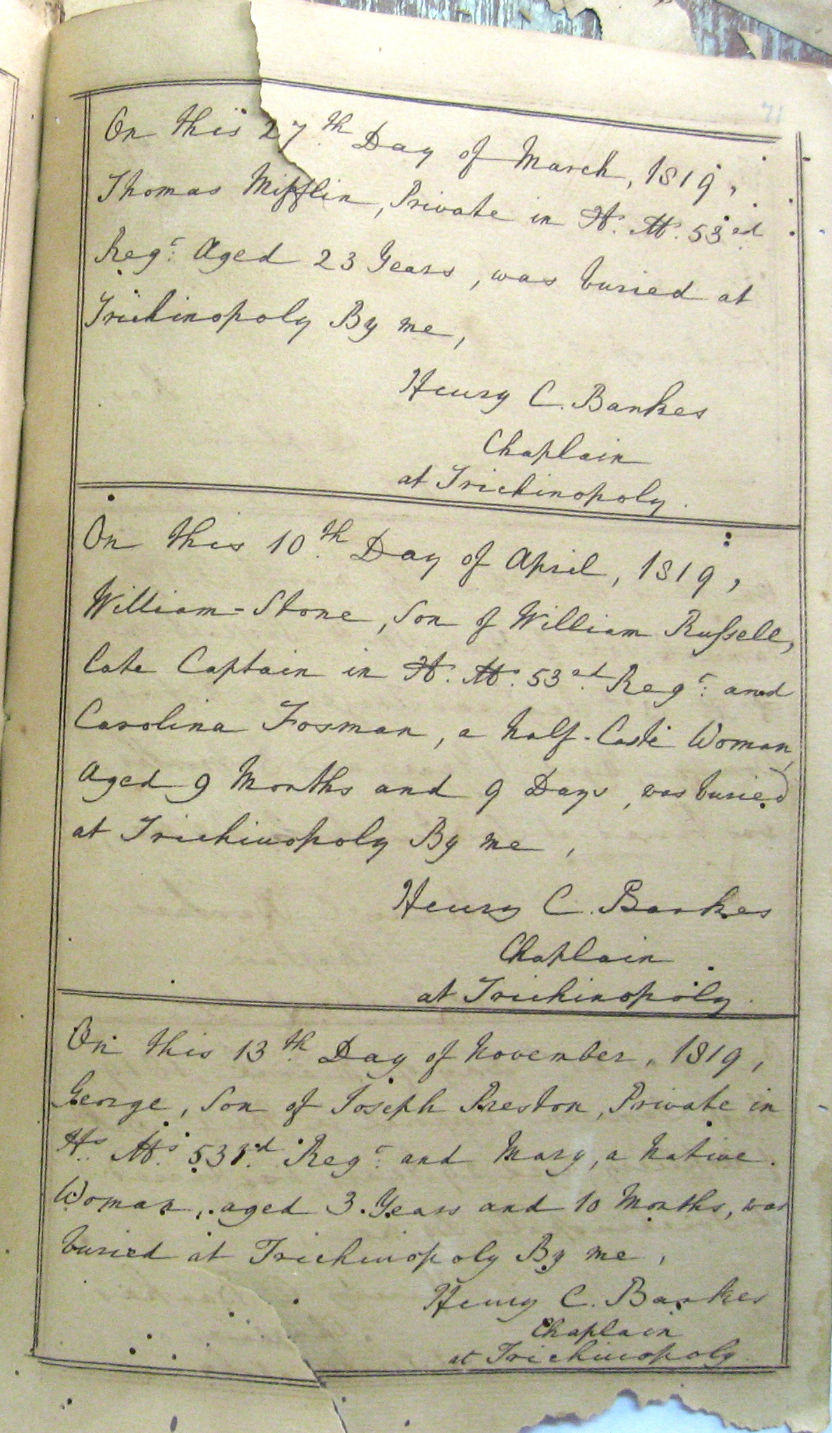 71
On this 27th Day of March, 1819,
Thomas Mifflin, Private in H. M. 53ed
Regr. Aged 23 Years, was buried at
Trichinopoly By me,
Henry C. Bankes
Chaplain
at Trichinopoly.
On this 10th Day of April, 1819,
William-Stone, Son of William Russell,
late Captain in H. M. 53ed Regr. and
Carolina Fosman, a half-Caste Woman,
Aged 9 Months and 9 Days, was buried
at Trichinopoly By me,
Henry C. Bankes
Chaplain
at Trichinopoly.
On this 13th Day of November, 1819,
George, Son of Joseph Preston, Private in
Hs. Ms. 53rd Regr. and Mary, a Native
Woman, aged 3 Years and 10 Months, was
buried at Trichinopoly By me,
Henry C. Bankes
Chaplain
at Trichinopoly.